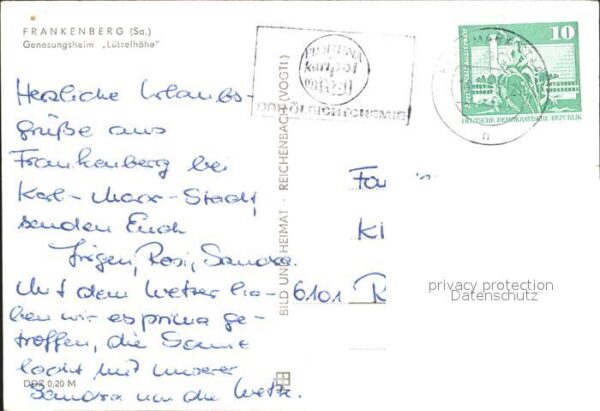 FRANKENBERG (Sa.)
Genesungsheim „Lützelhöhe"
Herzliche Urlaubs-
grüße aus
Frankenberg bei
Karl-Marx-Stadt,
senden Euch
Jürgen, Rosi, Sandra.
Mit dem Wetter ha-
ben wir es prima ge-
troffen, die Sonne
lacht mit unserer
Sandra um die Wette.
DDR 0,20 M
BILD UND HEIMAT · REICHENBACH (VOGTL)
FLORENA
DDR
10
DEUTSCHE DEMOKRATISCHE REPUBLIK
Fa
Kl
6101 R
privacy protection
Datenschutz